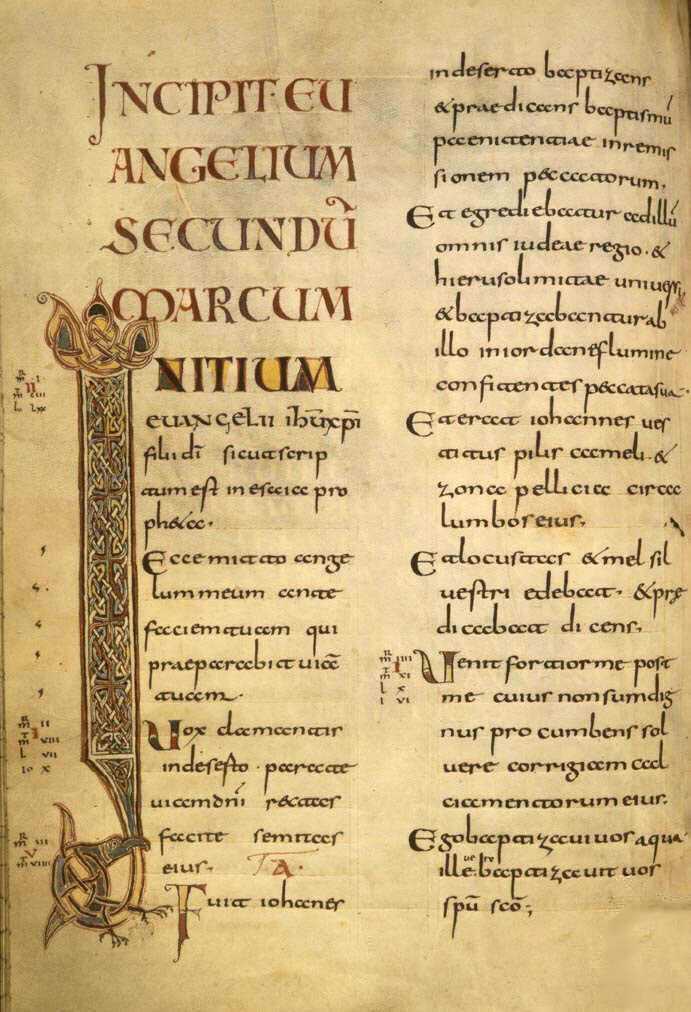 INCIPIT EU
ANGELIUM
SECUNDŪ
MARCUM
INITIUM
euangelii ihū xpī
filii dī sicut scrip
tum est in esaia pro
pheta.
Ecce mitto ange
lum meum ante
faciem tuam qui
praeparabit uiā
tuam.
Uox clamantis
in deserto. parate
uiam dnī rectas
facite semitas
eius. TA.
Fuit iohannes
in deserto baptizans
& praedicans baptismū
paenitentiae in remis
sionem peccatorum.
Et egrediebatur ad illū
omnis iudeae regio. &
hierusolimitae uniuersi
& baptizabantur ab
illo in iordane flumine
confitentes peccata sua.
Et erat iohannes ues
titus pilis cameli. &
zona pellicia circa
lumbos eius.
Et locustas & mel sil
uestri edebat. & prę
dicabat dicens.
Uenit fortior me post
me cuius non sum dig
nus procumbens sol
uere corrigiam cal
ciamentorum eius.
Ego baptizaui uos aqua
ille uero baptizauit uos
spū scō;